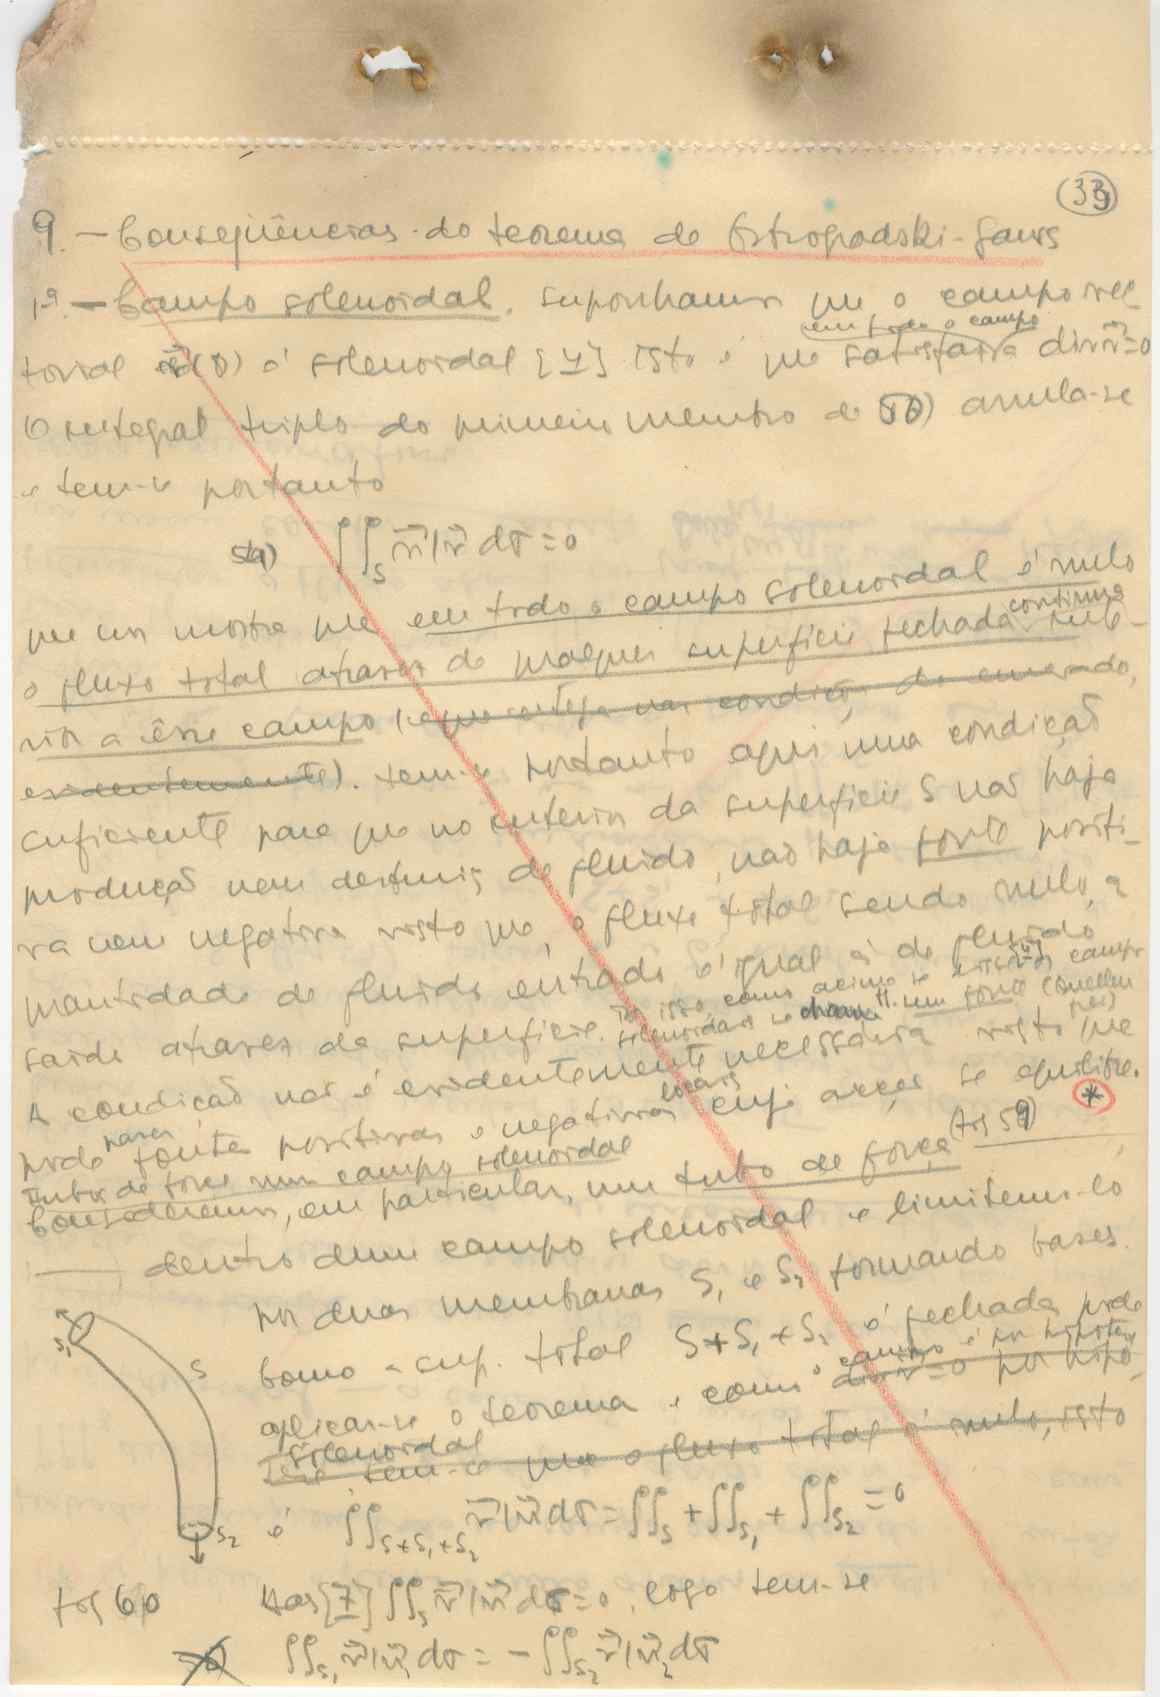 33
9. — Conseqüências do teorema de Ostrogradski-Gauss
1º. — Campo solenoidal. Suponhamos que o campo vec-
torial v(P) é solenoidal [7] isto é que satisfaria div v=0
em todo o campo
O integral triplo do primeiro membro de 58) anula-se
e tem-se portanto
59) ∫∫_S v|n dσ = 0
que nos mostra que em todo o campo solenoidal é nulo
o fluxo total através de qualquer superfície fechada inte-
contínua
rior a êsse campo
evidentemente). Tem-se portanto aqui uma condição
suficiente para que no interior da superfície S não haja
produção nem destruição de fluido, não haja fonte positi-
va nem negativa visto que, o fluxo total sendo nulo, a
quantidade de fluido entrado é igual à de fluido
saido através da superfície.
Por isso como acima se disse os campos
solenoidais se chamam sem fonte (quellen
A condição não é evidentemente necessária visto que
pode haver fontes positivas e negativas locais cujas acções se equilibre.
*
Tubos de força num campo solenoidal
Consideremos, em particular, um tubo de força (fig 59)
dentro dum campo solenoidal e limitemo-lo
por duas membranas S₁ e S₂ formando bases.
Como a sup. total S+S₁+S₂ é fechada pode
aplicar-se o teorema e como o campo é por hipótese
div v=0 por hipó-
solenoidal
tese tem-se que o fluxo total é nulo, isto
é ∫∫_{S+S₁+S₂} v|n dσ = ∫∫_S + ∫∫_{S₁} + ∫∫_{S₂} = 0
S₁
S
S₂
fig 60
Mas [7] ∫∫_S v|n dσ = 0, logo tem-se
∫∫_{S₁} v|n₁ dσ = - ∫∫_{S₂} v|n₂ dσ